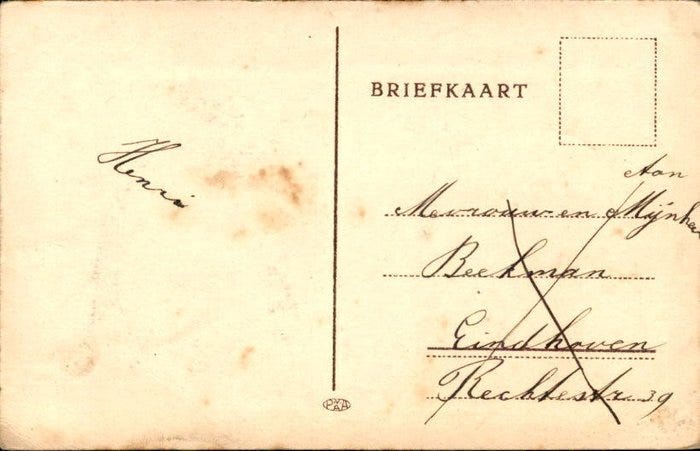 Henri
BRIEFKAART
Aan
Mevrouw en Mijnheer
Beekman
Eindhoven
Rechtestr 39